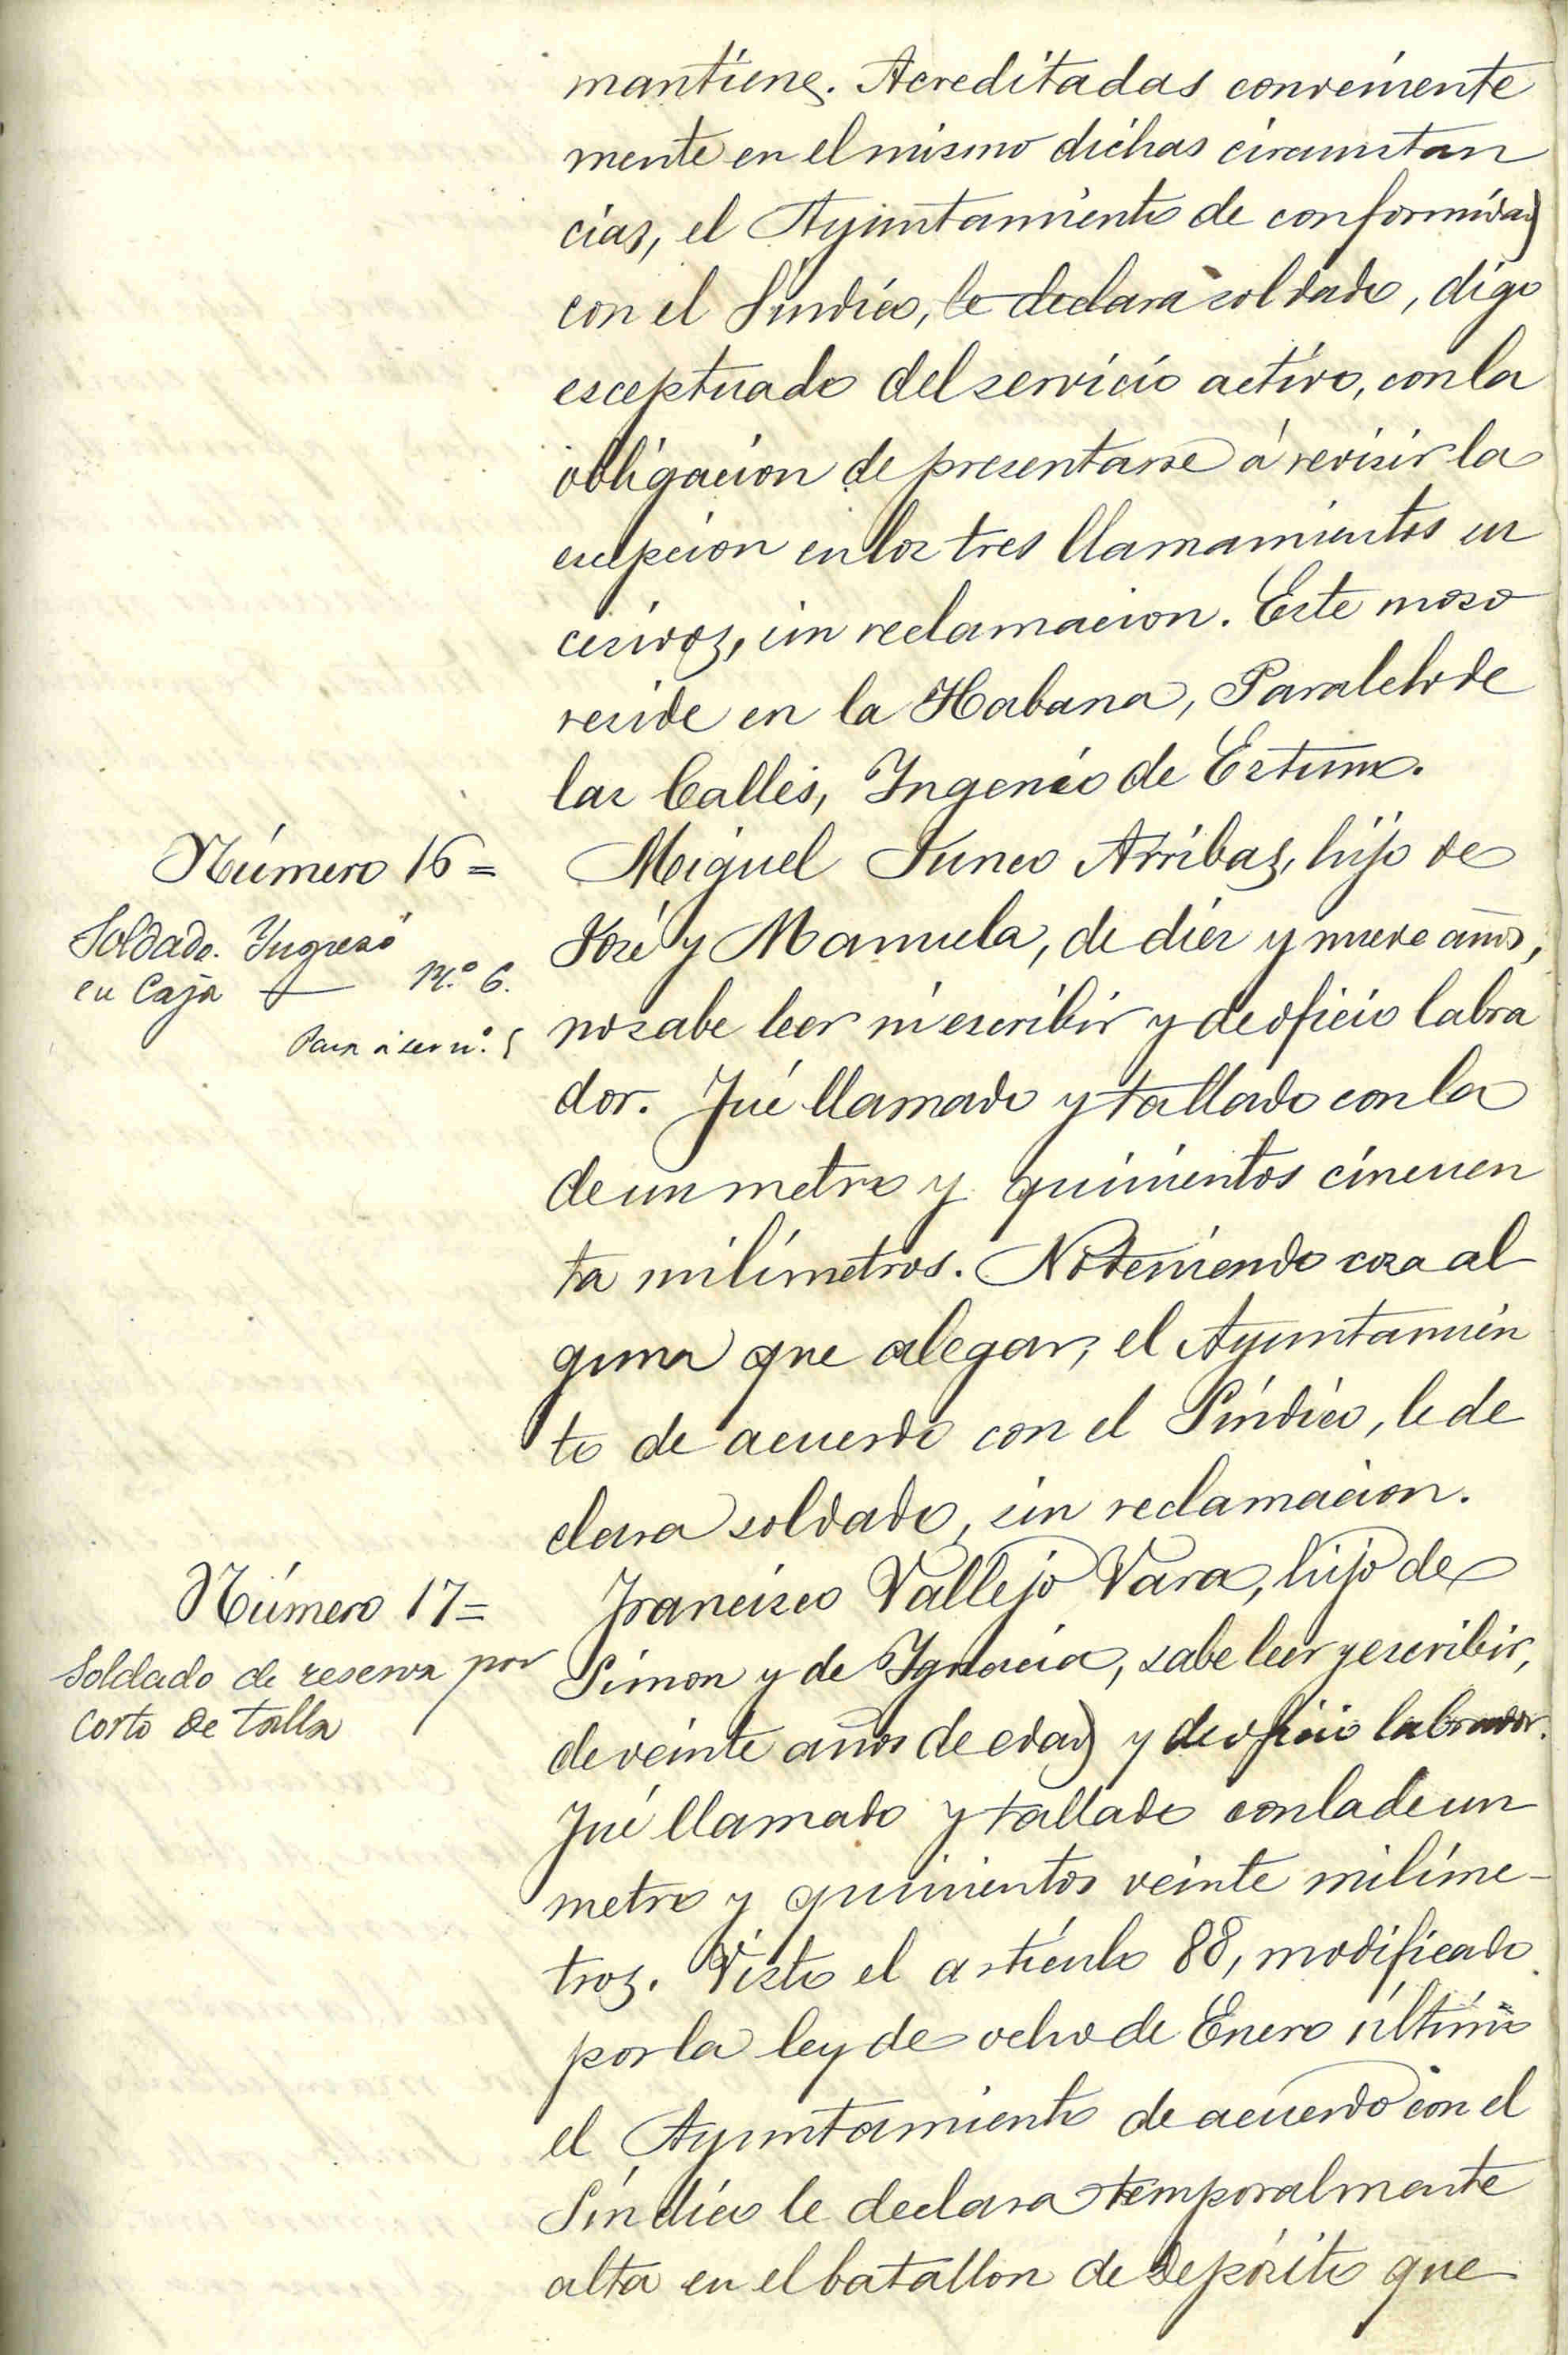 mantiene. Acreditadas conveniente
mente en el mismo dichas circunstan
cias, el Ayuntamiento de conformidad
con el Síndico, le declara soldado, digo
esceptuado del servicio activo, con la
obligacion de presentarse á revisir la
escepcion en los tres llamamientos su
cesivos, sin reclamacion. Este moso
reside en la Habana, Paralelo de
las Calles, Ingenio de
Número 16=
Soldado. Ingresó
en Caja — N.º 6.
Pasa á ser n.º 5
Miguel Junco Arribas, hijo de
José y Manuela, de diez y nueve años,
no sabe leer ni escribir y de oficio labra
dor. Fué llamado y tallado con la
de un metro y quinientos cincuen
ta milímetros. No teniendo cosa al
guna que alegar, el Ayuntamien
to de acuerdo con el Síndico, le de
clara soldado, sin reclamacion.
Número 17=
Soldado de reserva por
corto de talla
Francisco Vallejo Vara, hijo de
Simon y de Ignacia, sabe leer y escribir,
de veinte años de edad y de oficio labrador.
Fué llamado y tallado con la de un
metro y quinientos veinte milíme-
tros. Visto el artículo 88, modificado
por la ley de ocho de Enero último
el Ayuntamiento de acuerdo con el
Síndico le declara temporalmente
alta en el batallon de Depósito que